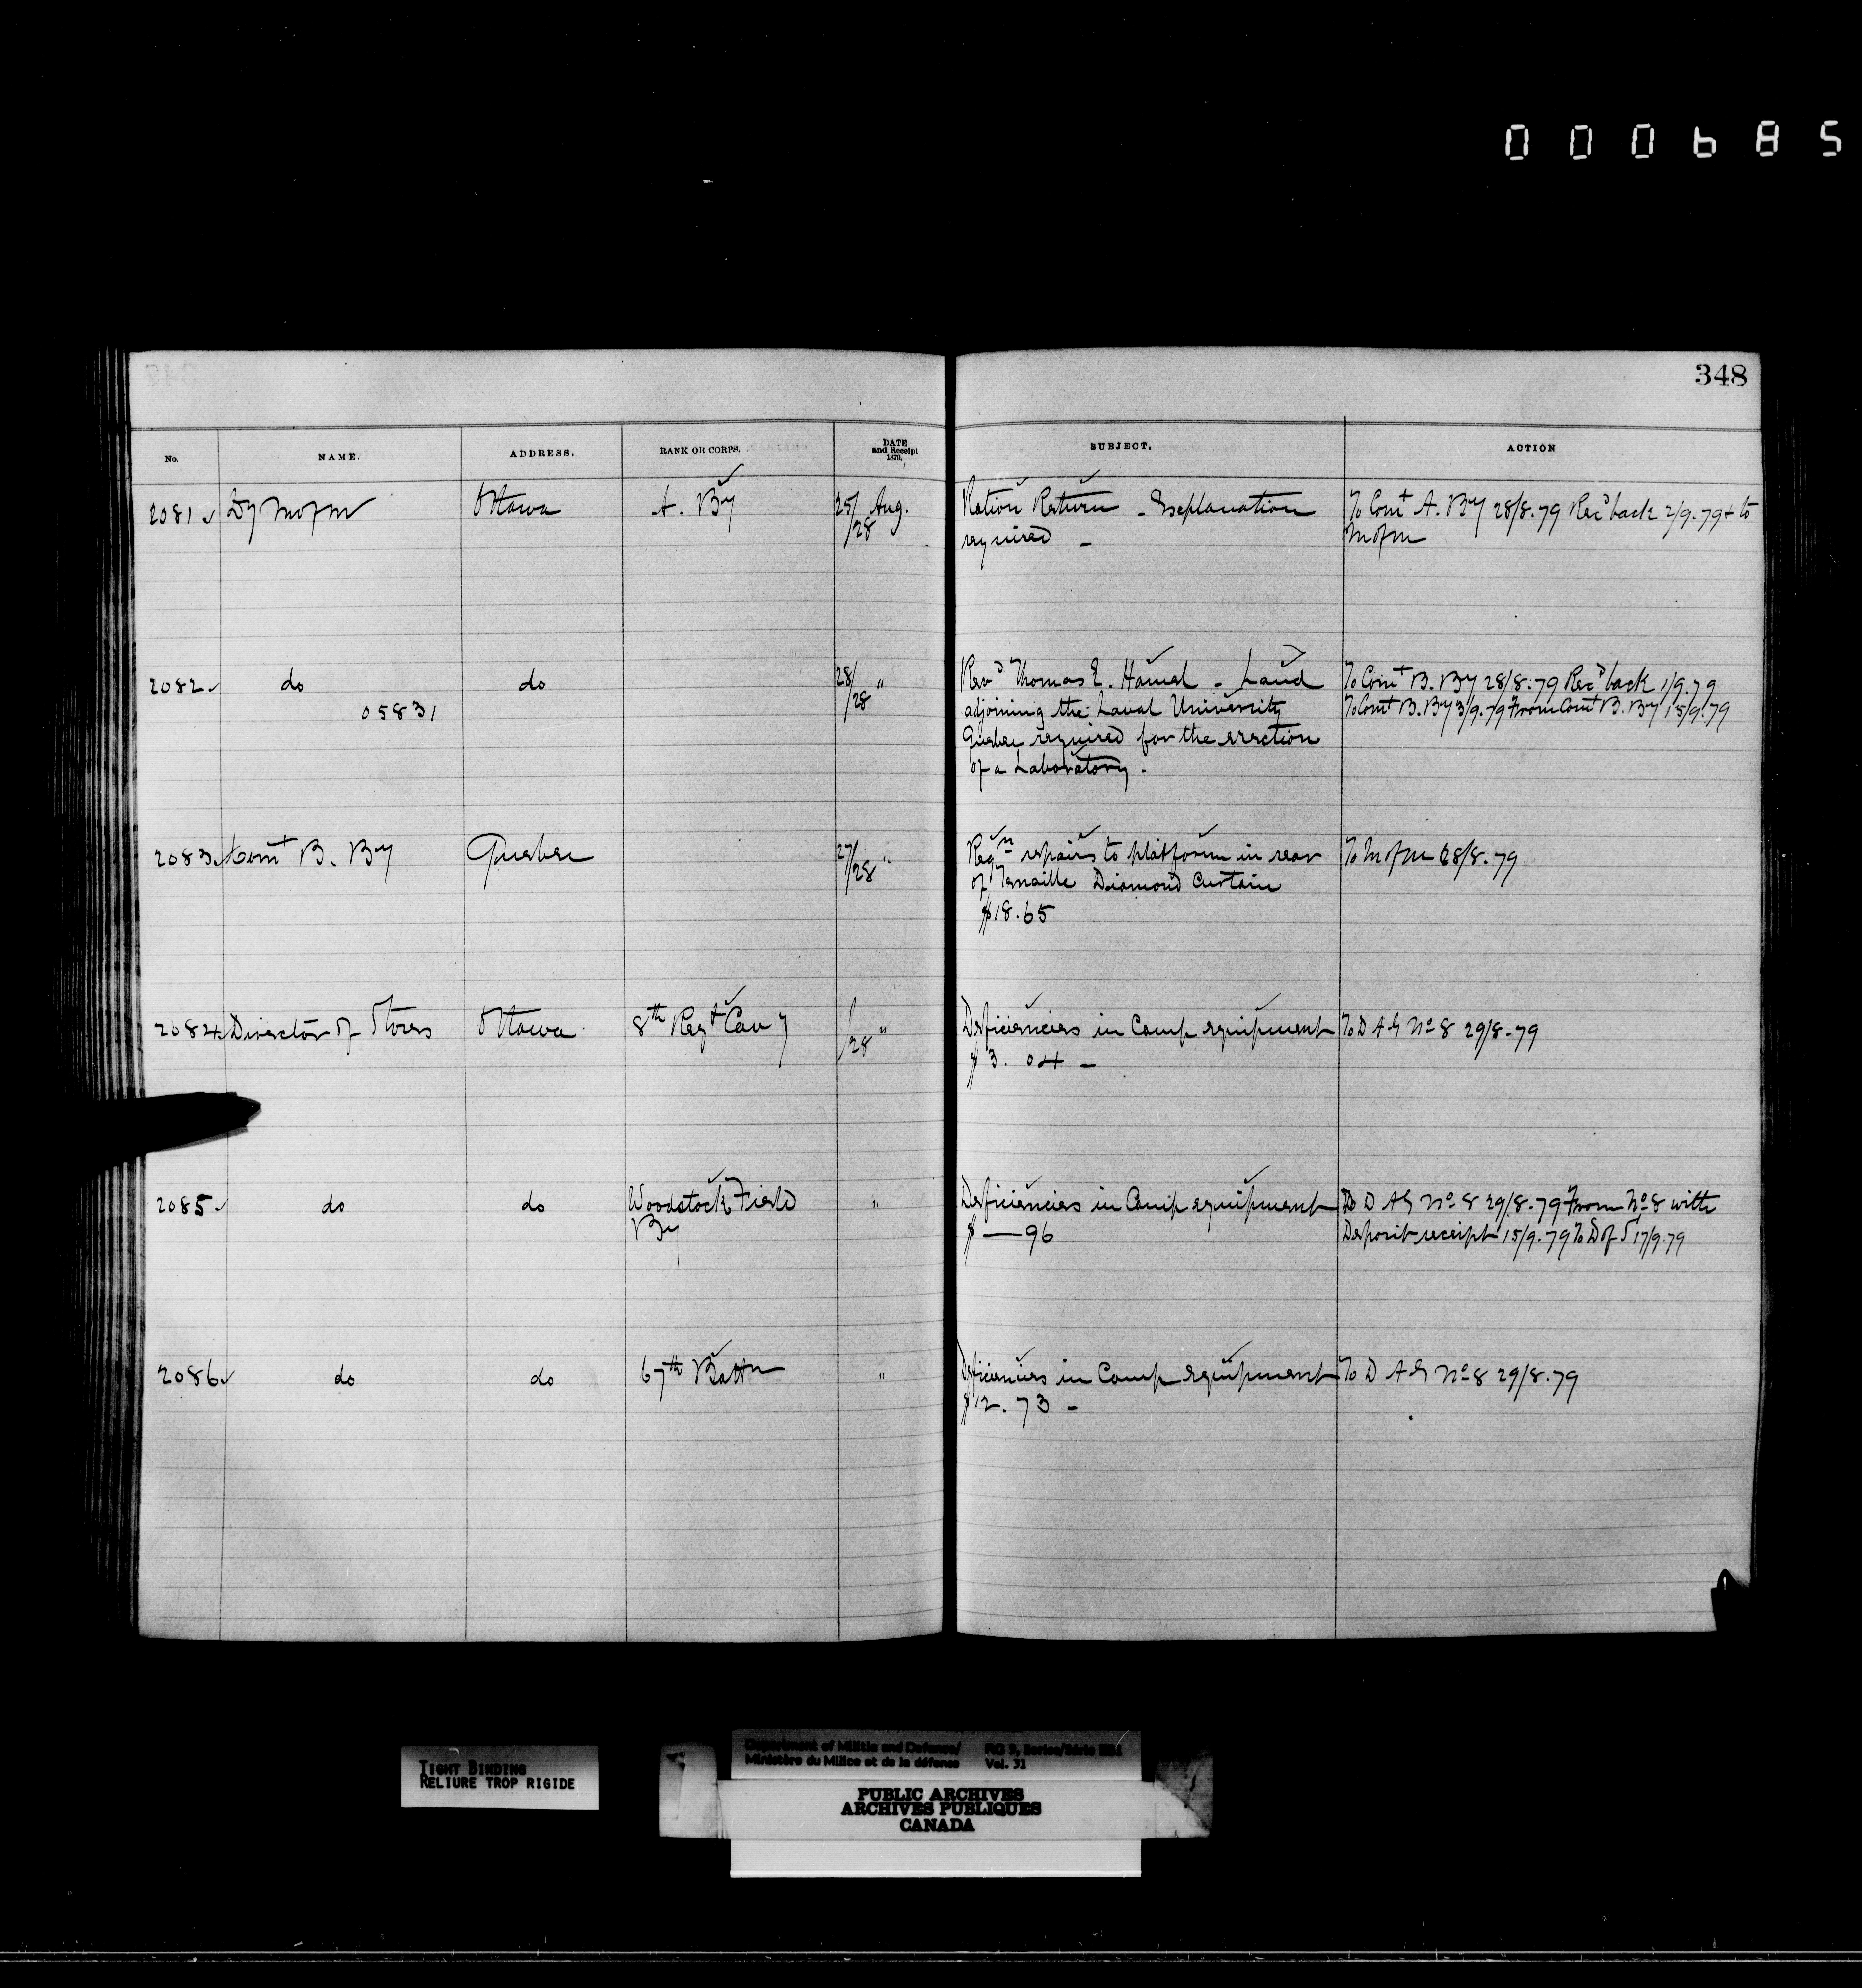 000685
348
No. NAME. ADDRESS. RANK OR CORPS. DATE and Receipt 1879. SUBJECT. ACTION
2081 Dy M of M Ottawa A. By 25/28 Aug. Ration Return - Explanation To Comt A. By 28/8.79 Recd back 2/9.79 + to
required - M of M
2082 do do 28/28 " Revd Thomas E. Hamel - Land To Comt B. By 28/8.79 Recd back 1/9.79
05831 adjoining the Laval University To Comt B. By 3/9.79 From Comt B. By 15/9.79
Quebec required for the erection
of a Laboratory.
2083 Comt B. By Quebec 27/28 " Reqn repairs to platform in rear To M of M 28/8.79
of Tenaille Diamond Curtain
$18.65
2084 Director of Stores Ottawa 8th Regt Cavy /28 " Deficiencies in Camp equipment To D A G No 8 29/8.79
$3.04 -
2085 do do Woodstock Field " Deficiencies in Camp equipment To D A G No 8 29/8.79 From No 8 with
By $ — 96 Deposit receipt 15/9.79 To D of S 17/9.79
2086 do do 67th Battn " Deficiencies in Camp equipment To D A G No 8 29/8.79
$12.73 -
TIGHT BINDING
RELIURE TROP RIGIDE
Department of Militia and Defence/ RG 9, Series/Série
Ministère du Milice et de la défense Vol. 31
PUBLIC ARCHIVES
ARCHIVES PUBLIQUES
CANADA